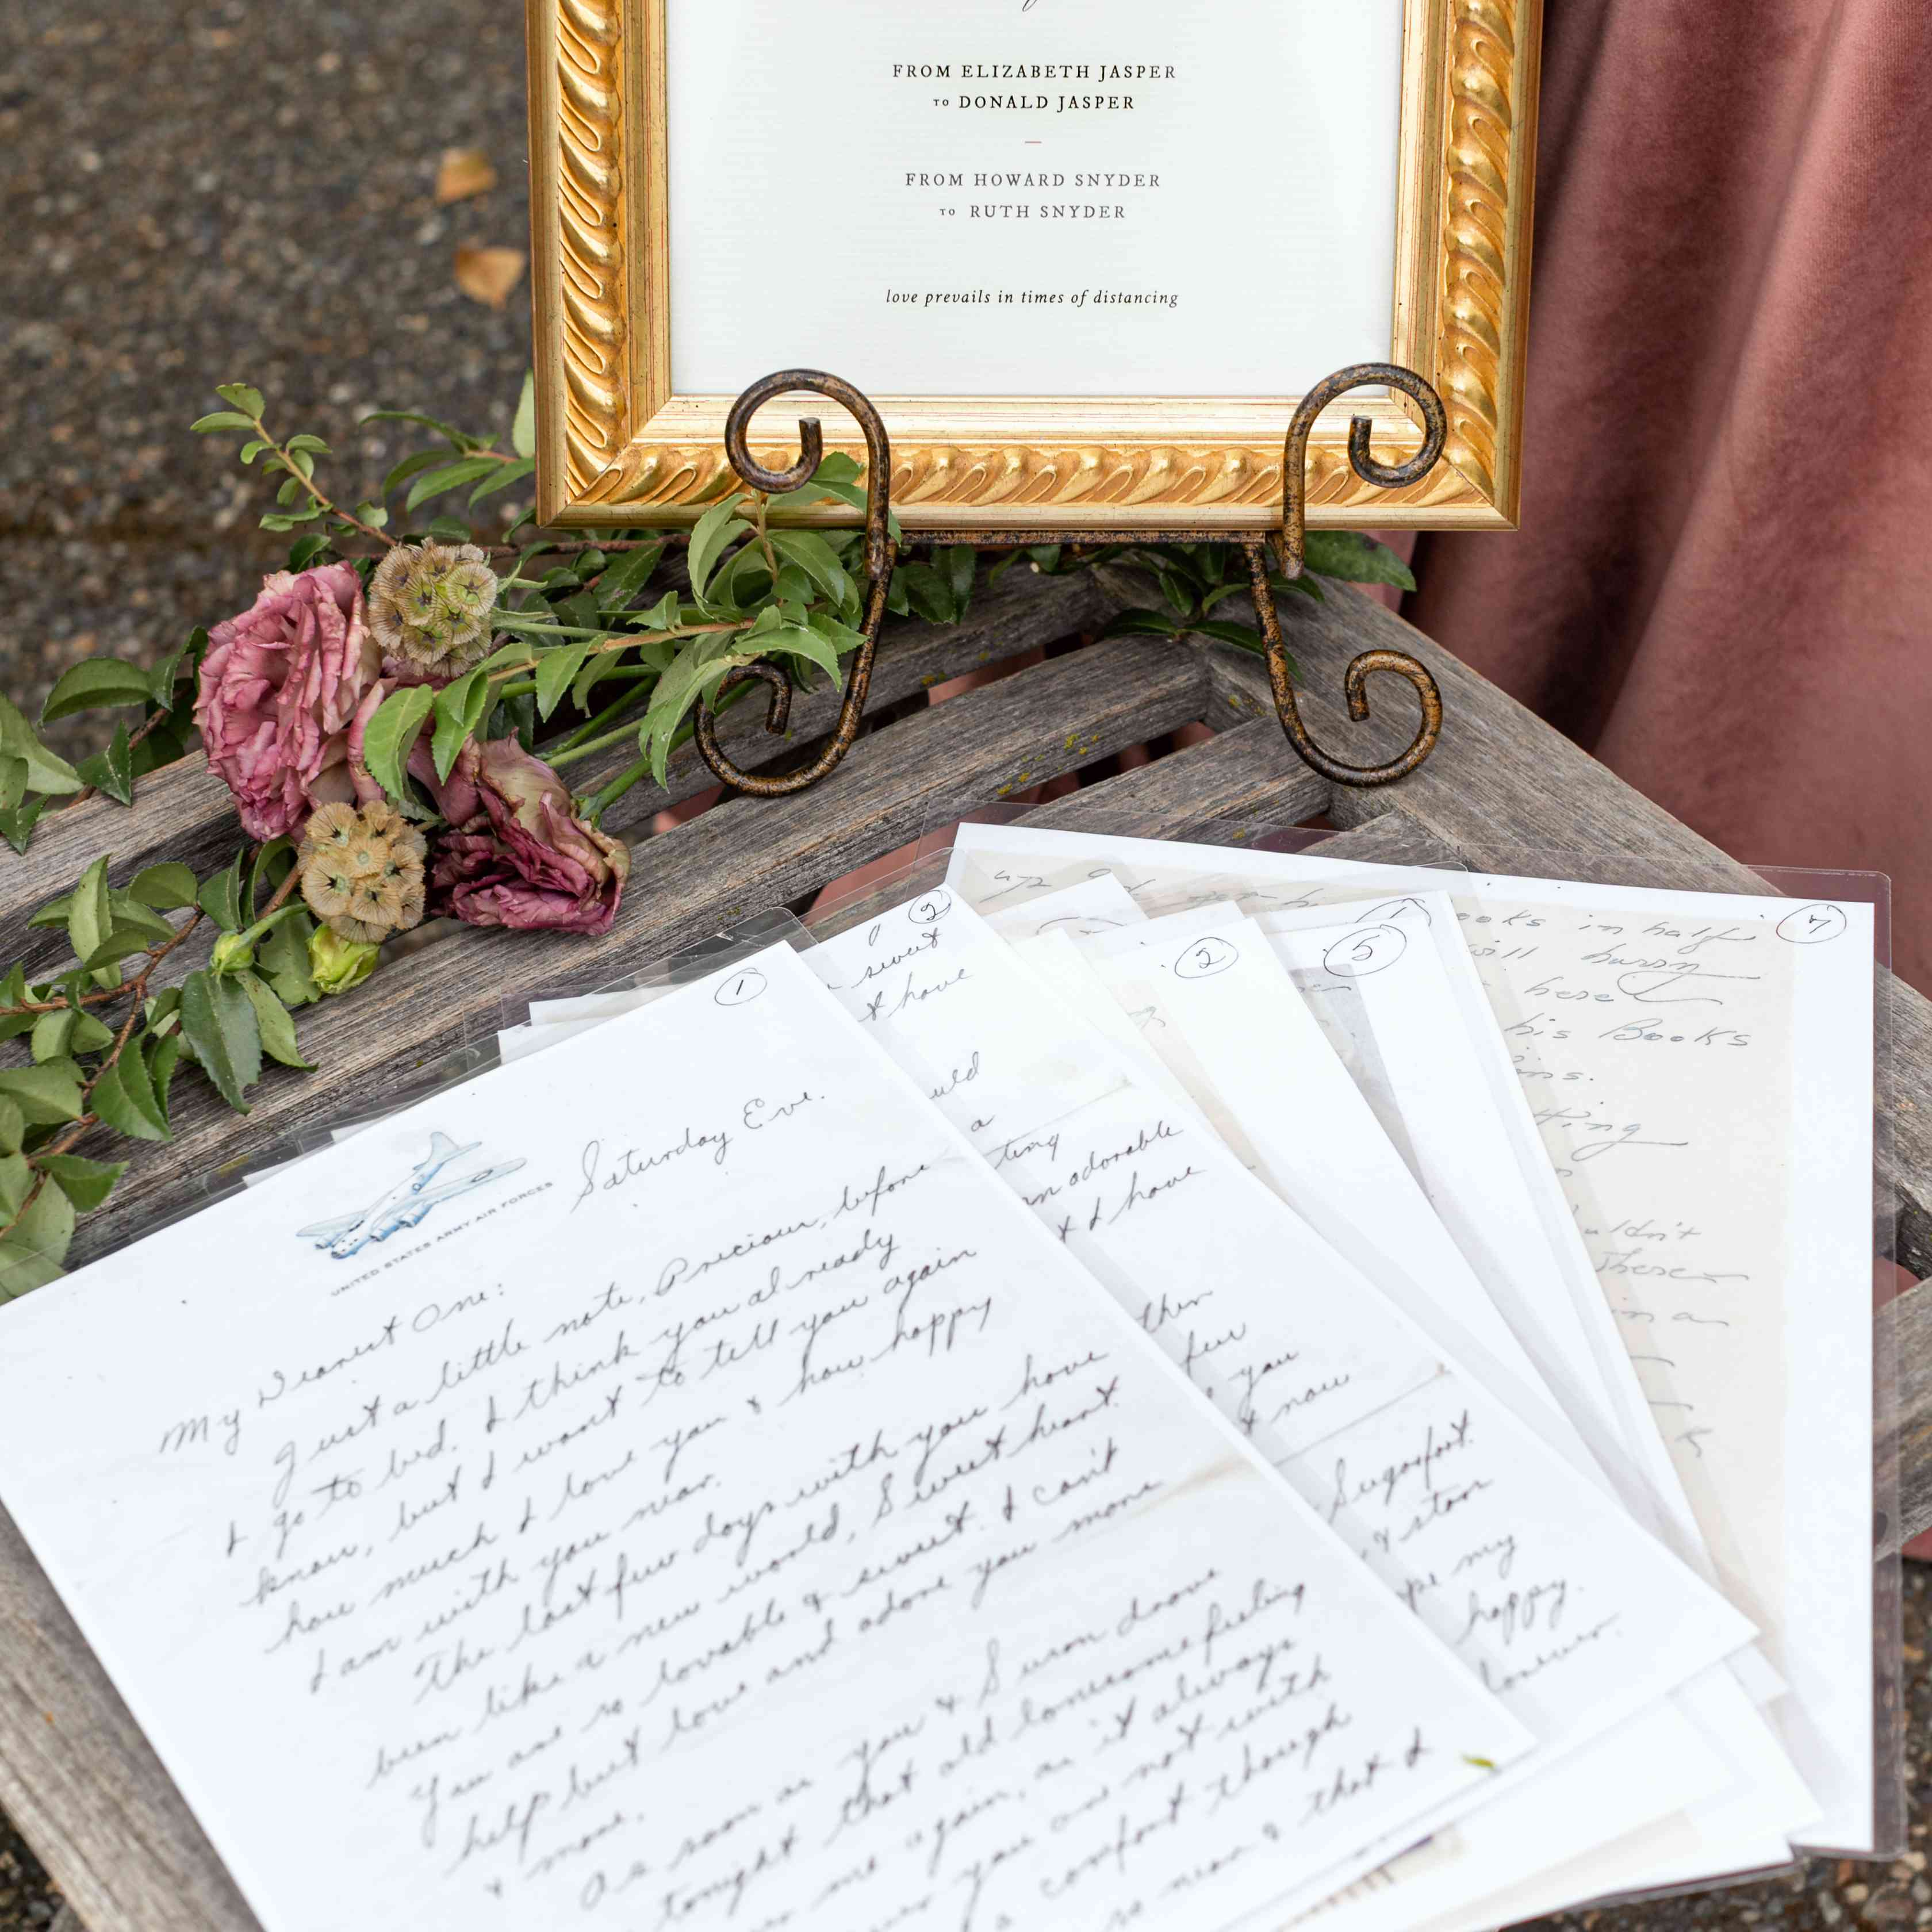 FROM ELIZABETH JASPER
TO DONALD JASPER
FROM HOWARD SNYDER
TO RUTH SNYDER
love prevails in times of distancing
1
UNITED STATES ARMY AIR FORCES
Saturday Eve.
My Dearest One:
Just a little note, Precious, before
I go to bed. I think you already
know, but I want to tell you again
how much I love you & how happy
I am with you near.
The last few days with you have
been like a new world, Sweetheart.
You are so lovable & sweet. I can't
help but love and adore you more
& more.
As soon as you & Susan drove
tonight that old lonesome feeling
me again, as it always
you are not with
comfort though
so near & that I
2
sweet
& have
uld
a
ting
an adorable
& I have
then
few
you
& now
Sugarfoot
& star
my
happy.
forever.
2
5
1
7
up
ooks in half
will burn
here
his Books
ins.
tting
uldn't
There
in a